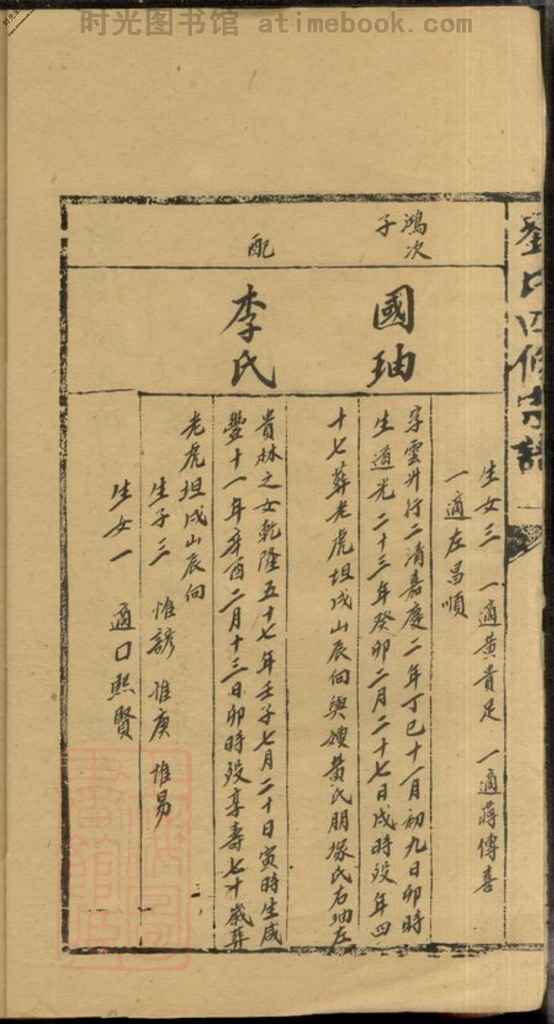 时光图书馆 atimebook.com
劉氏四修宗譜
生女三 一適黄貴足 一適蔣傳喜
一適左昌順
鴻次
子
國珀
字雲升行二清嘉慶二年丁巳十一月初九日卯時
生道光二十三年癸卯二月二十七日戌時殁年四
十七葬老虎坦戌山辰向與嫂黄氏朋塚氏右珀左
配
李氏
貴林之女乾隆五十七年壬子七月二十日寅時生咸
豐十一年辛酉二月十三日卯時殁享壽七十歲葬
老虎坦戌山辰向
生子三 惟諺 惟庚 惟易
生女一 適口熙賢